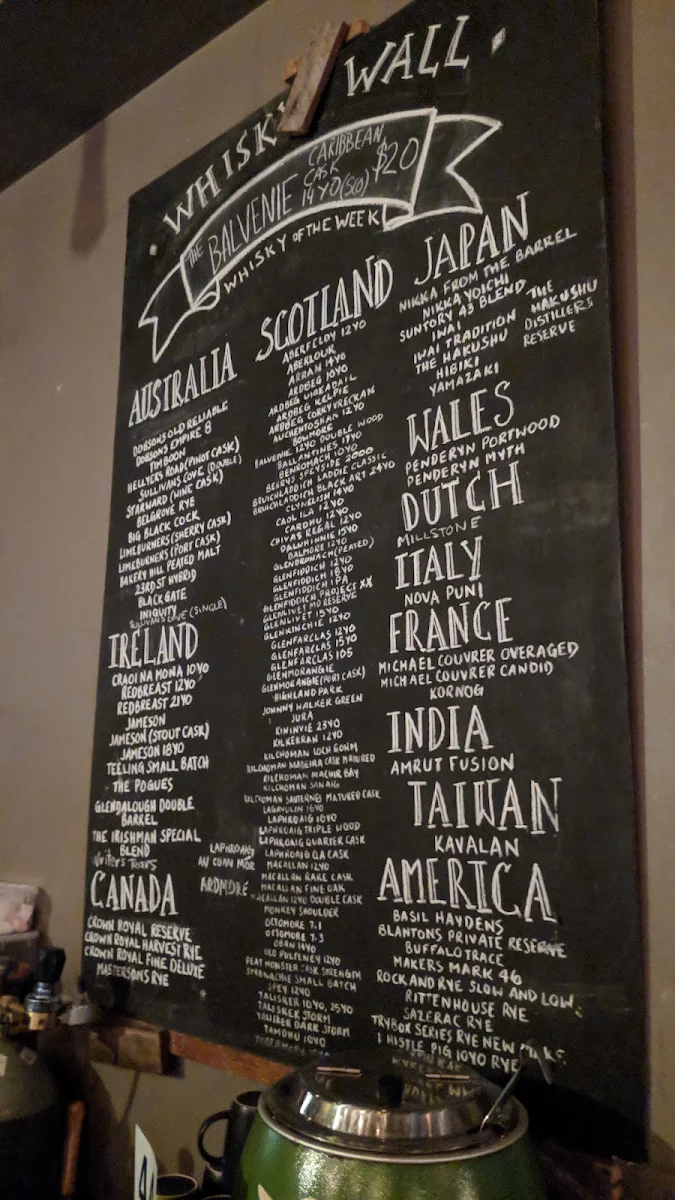 WHISKY WALL
THE BALVENIE CARIBBEAN
CASK
14 YO (SCO) $20
WHISKY OF THE WEEK
AUSTRALIA
DOBSONS OLD RELIABLE
DOBSONS EMPIRE 8
TIMBOON
HELLYERS ROAD (PINOT CASK)
SULLIVANS COVE (DOUBLE)
STARWARD (WINE CASK)
BELGROVE RYE
BIG BLACK COCK
LIMEBURNERS (SHERRY CASK)
LIMEBURNERS (PORT CASK)
BAKERY HILL PEATED MALT
23RD ST HYBRID
BLACK GATE
INIQUITY
SULLIVAN'S COVE (SINGLE)
IRELAND
CRAOI NA MONA 10YO
REDBREAST 12YO
REDBREAST 21YO
JAMESON
JAMESON (STOUT CASK)
JAMESON 18YO
TEELING SMALL BATCH
THE POGUES
GLENDALOUGH DOUBLE
BARREL
THE IRISHMAN SPECIAL
BLEND
Writer's Tears
CANADA
CROWN ROYAL RESERVE
CROWN ROYAL HARVEST RYE
CROWN ROYAL FINE DELUXE
MASTERSONS RYE
SCOTLAND
ABERFELDY 12YO
ABERLOUR
ARRAN 14YO
ARDBEG 10YO
ARDBEG UIGEADAIL
ARDBEG KELPIE
ARDBEG CORRYVRECKAN
AUCHENTOSHAN 12YO
BOWMORE
BALVENIE 12YO DOUBLE WOOD
BALLANTINES 17YO
BENROMACH 10YO
BERRYS SPEYSIDE 2000
BRUICHLADDICH LADDIE CLASSIC
BRUICHLADDICH BLACK ART 24YO
CLYNELISH 14YO
CAOL ILA 12YO
CARDHU 12YO
CHIVAS REGAL 12YO
DALWHINNIE 15YO
DALMORE 12YO
GLENDRONACH (PEATED)
GLENFIDDICH 12YO
GLENFIDDICH 18YO
GLENFIDDICH IPA
GLENFIDDICH PROJECT XX
GLENLIVET MD RESERVE
GLENLIVET 15YO
GLENKINCHIE 12YO
GLENFARCLAS 12YO
GLENFARCLAS 15YO
GLENFARCLAS 105
GLENMORANGIE
GLENMORANGIE (PORT CASK)
HIGHLAND PARK
JOHNNY WALKER GREEN
JURA
KININVIE 23YO
KILKERRAN 12YO
KILCHOMAN LOCH GORM
KILCHOMAN MADEIRA CASK MATURED
KILCHOMAN MACHIR BAY
KILCHOMAN SANAIG
KILCHOMAN SAUTERNES MATURED CASK
LAGAVULIN 16YO
LAPHROAIG 10YO
LAPHROAIG TRIPLE WOOD
LAPHROAIG QUARTER CASK
LAPHROAIG QA CASK
LAPHROAIG
AN CUAN MOR
MACALLAN 12YO
MACALLAN RARE CASK
ARDMORE
MACALLAN FINE OAK
MACALLAN 12YO DOUBLE CASK
MONKEY SHOULDER
OCTOMORE 7.1
OCTOMORE 7.3
OBAN 14YO
OLD PULTENEY 12YO
PEAT MONSTER CASK STRENGTH
STRONACHIE SMALL BATCH
SPEY 12YO
TALISKER 10YO, 25YO
TALISKER STORM
TALISKER DARK STORM
TAMDHU 10YO
JAPAN
NIKKA FROM THE BARREL
NIKKA YOICHI
SUNTORY A3 BLEND
IWAI
IWAI TRADITION
THE HAKUSHU
HIBIKI
YAMAZAKI
THE
HAKUSHU
DISTILLERS
RESERVE
WALES
PENDERYN PORTWOOD
PENDERYN MYTH
DUTCH
MILLSTONE
ITALY
NOVA PUNI
FRANCE
MICHAEL COUVRER OVERAGED
MICHAEL COUVRER CANDID
KORNOG
INDIA
AMRUT FUSION
TAIWAN
KAVALAN
AMERICA
BASIL HAYDENS
BLANTONS PRIVATE RESERVE
BUFFALO TRACE
MAKERS MARK 46
ROCK AND RYE SLOW AND LOW
RITTENHOUSE RYE
SAZERAC RYE
TRYBOX SERIES RYE NEW MAKE
WHISTLE PIG 10YO RYE